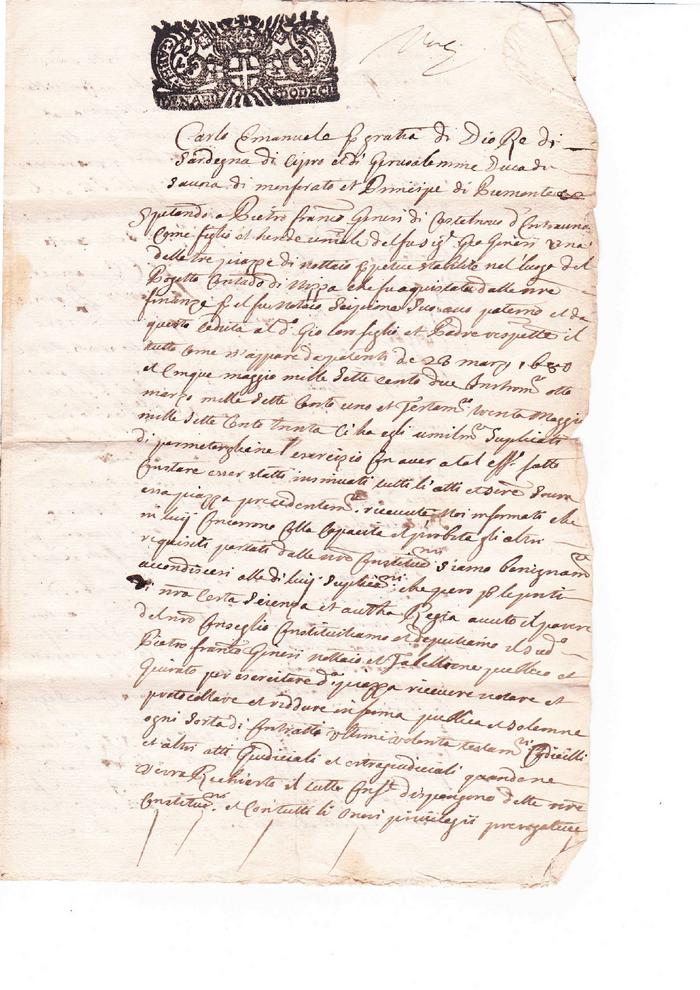 DENARI DODECI
Carlo Emanuele p gratia di Dio Re di
Sardegna di Cipro et di Gerusalemme Duca di
Savoia di monferato et Principe di Piemonte &c
Spetando a Pietro franco Ginesi di Castelnovo d'Entraune
Come figlio et herede universale del fu sigr Gio Ginesi una
delle tre piazze di nottaio perpetue stabilite nel luogo del
Pogetto Contado di Nizza che fu aquistata dalle nre
finanze p il fu nottaio Scipione Suo avo paterno et da
questo ceduta al do Gio suo figlio et Padre respette il
tutto Come n'appare da patenti de 23 marzo 1680
et Cinque maggio mille Sette cento due Instromo otto
marzo mille Sette Cento uno et Testamo trenta Maggio
mille Sette Cento trenta Ci ha egli umilmte Suplicati
di permetterghene l'esercizio Con aver a tal effo fatto
Constare esser statti insinuati tutti l'atti
essa piazza precedentemte ricevute Noi informati che
in luij Concorrono colla Capacità et probità gli altri
requisiti portati dalle nre Constitunni Siamo benignamte
accondiscesi alle di luij Suplicanni che perо p le pnti
di nra Certa Scienza et auttha Regia avuto il parere
del nro Conseglio Constituittiamo et deputiamo il sudo
Pietro franco Ginesi nottaio et Tabellione publico et
Giurato per esercitare da piazza ricevere notare et
protocollare et riddure in forma publica et solemne
ogni Sorta di Contratto ultime volontà testamti Codicilli
et altri atti Giudiciali et extragiudiciali quando ne
verrà Richiesto il tutto Confe dispongono dette nre
Constitunni et Con tutti li Onori privilegii prerogative